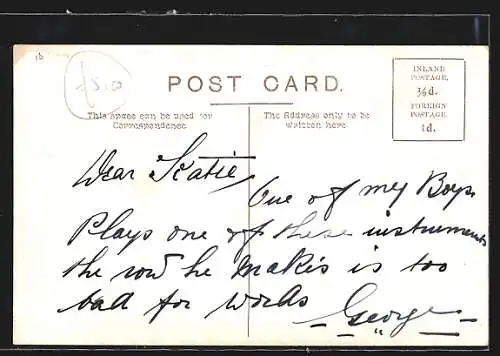 1b
£5.00
POST CARD.
This space can be used for
Correspondence
The Address only to be
written here
INLAND
POSTAGE,
½d.
FOREIGN
POSTAGE
1d.
Dear Katie,
One of my Boys
Plays one of these instruments
the row he makis is too
bad for words
George